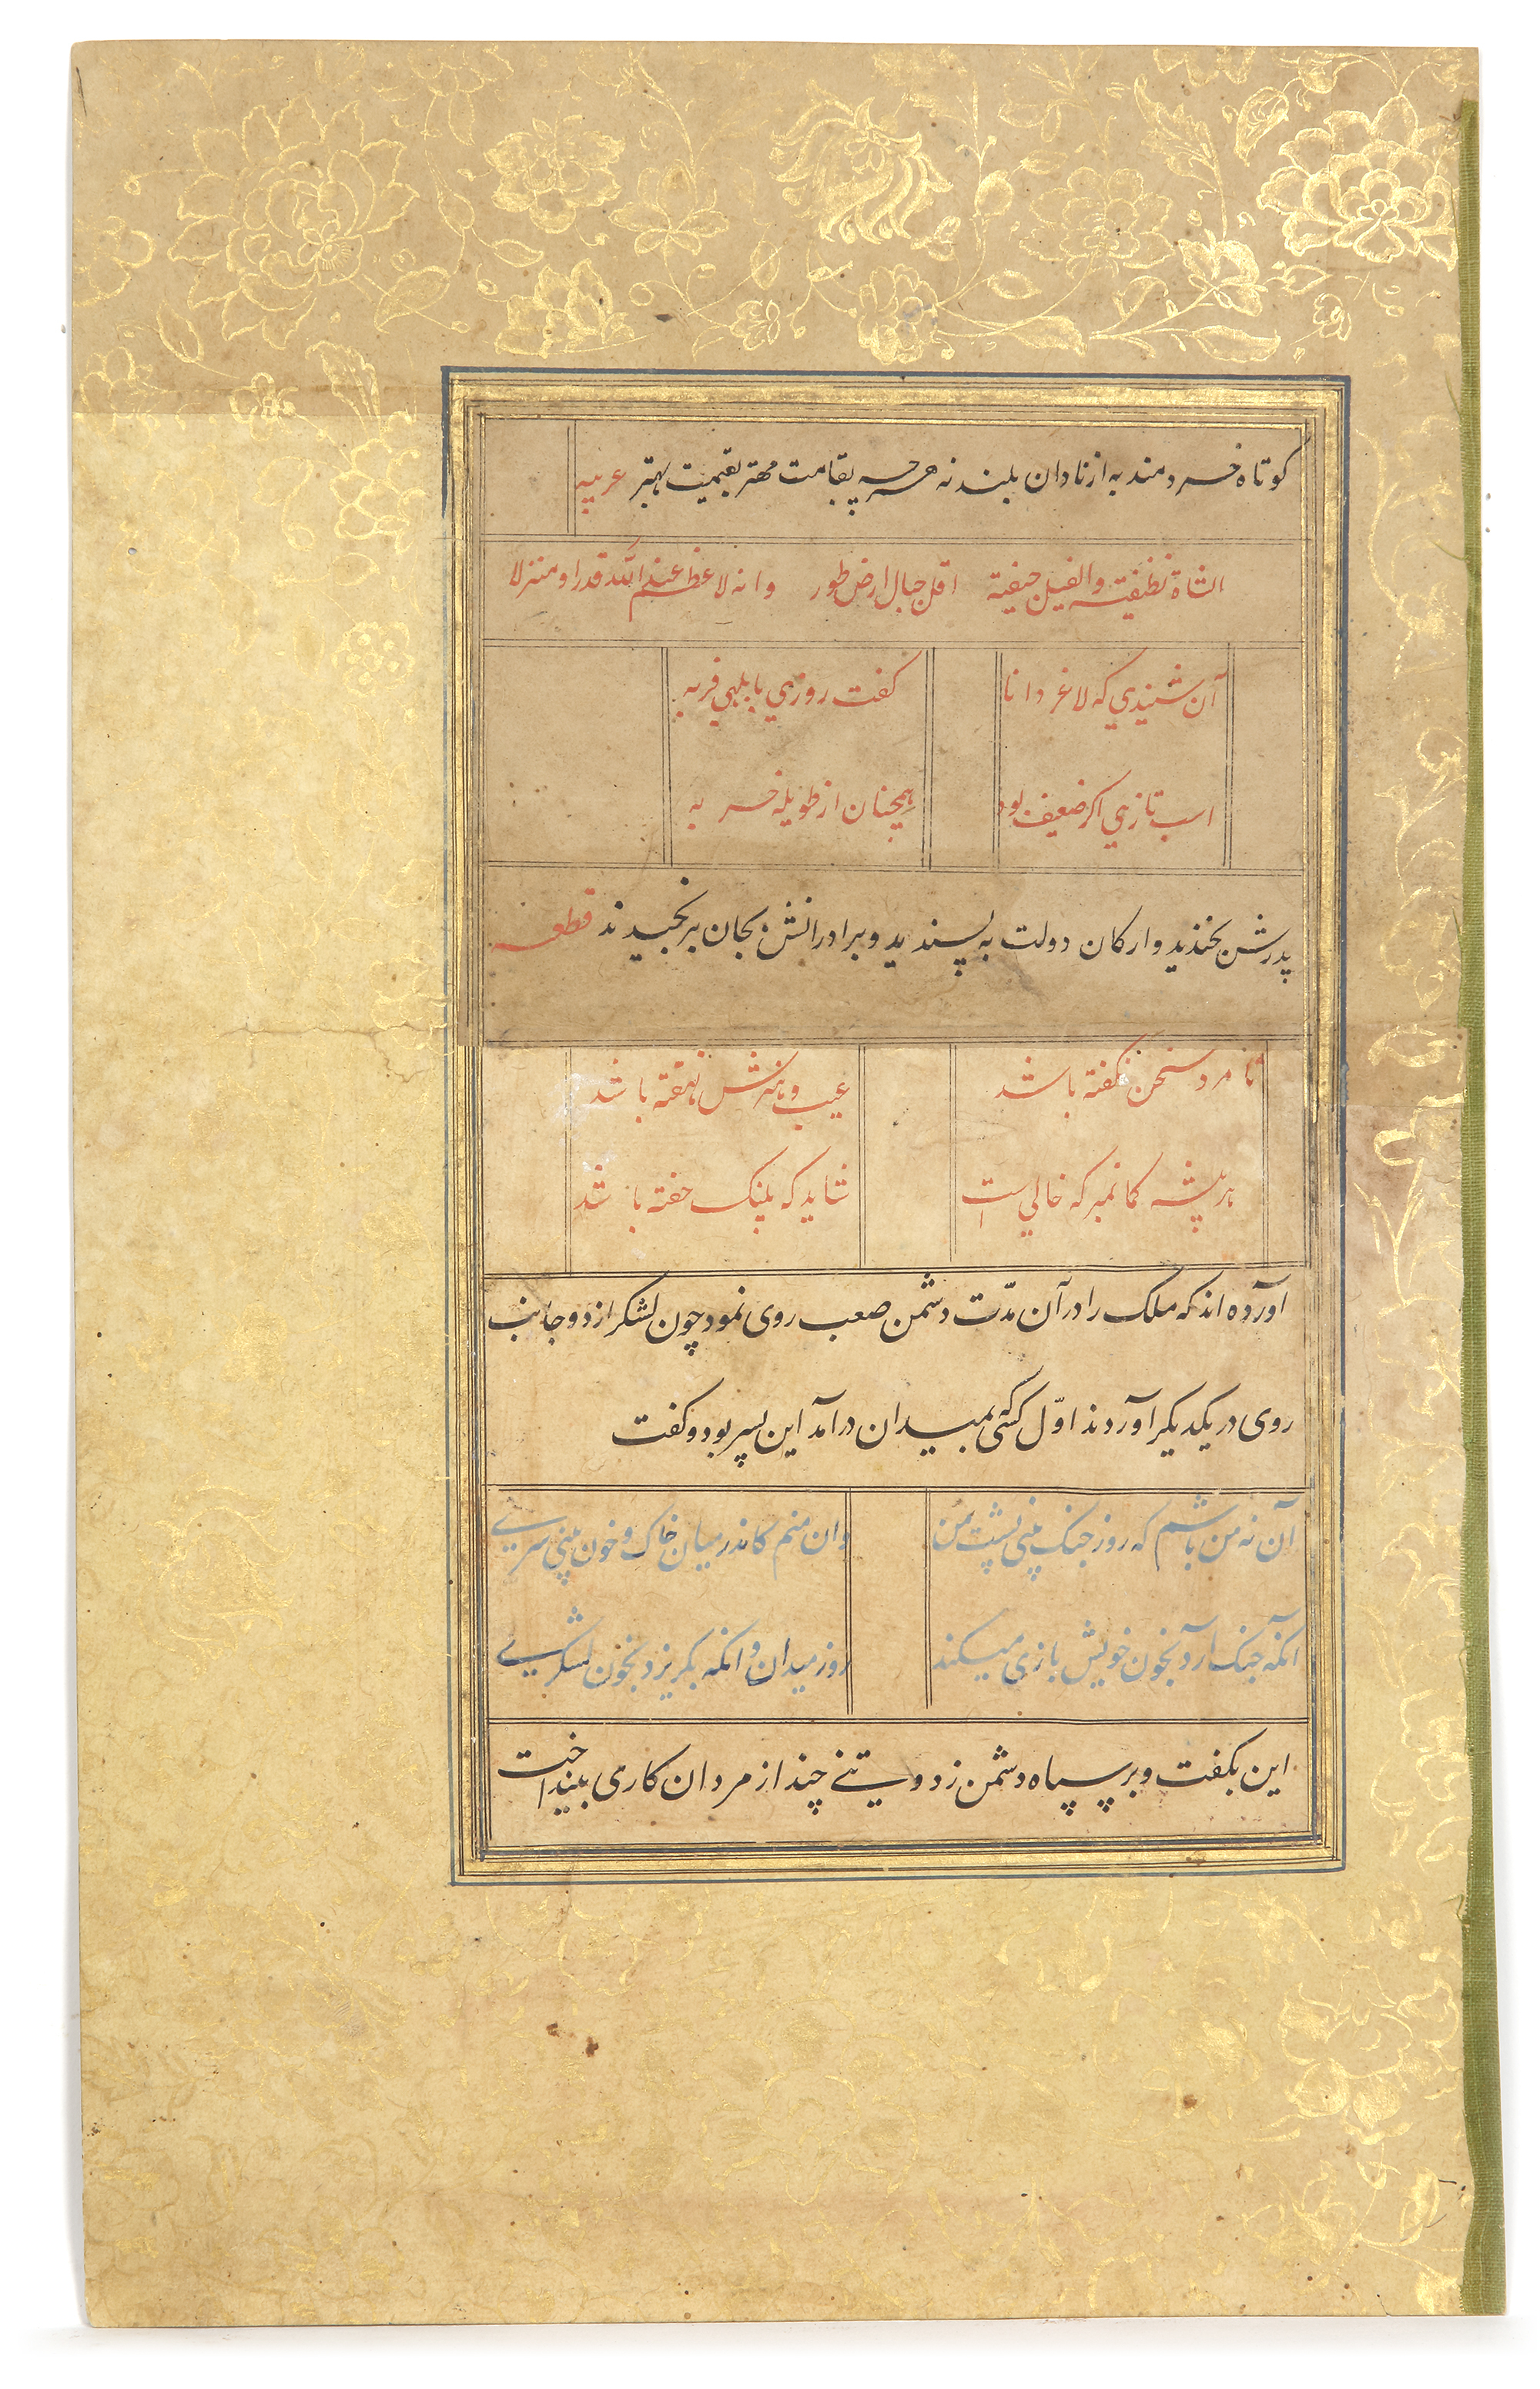 کوتاه خردمند به از نادان بلند نه هر چه بقامت مهتر بقیمت بهتر عربیه
الشاة نظیفته والفیل جیفیة اقل جبال ارض طور وانه لاعظم عند الله قدرا و منزلا
آن شنیدی که لاغر دانا کفت روزی بابلهی فربه
اسب تازی اکر ضعیف بود همچنان از طویله خر به
پدرش بخندید و ارکان دولت به پسندید و برادرانش بجان برنجیدند قطعه
تا مرد سخن نکفته باشد عیب و هنرش نهفته باشد
هر بیشه کمان مبر که خالی است شاید که پلنک خفته باشد
آورده اند که ملک را در آن مدّت دشمن صعب روی نمود چون لشکر از دو جانب
روی در یکدیکر آوردند اوّل کسی که بمیدان درآمد این پسر بود و کفت
آن نه من باشم که روز جنک بینی پشت من وان منم کاندر میان خاک و خون بینی سری
آنکه جنک آرد بخون خویش بازی میکند روز میدان وآنکه بکریزد بخون لشکری
این بکفت و بر سپاه دشمن زد و تنی چند از مردان کاری بینداخت